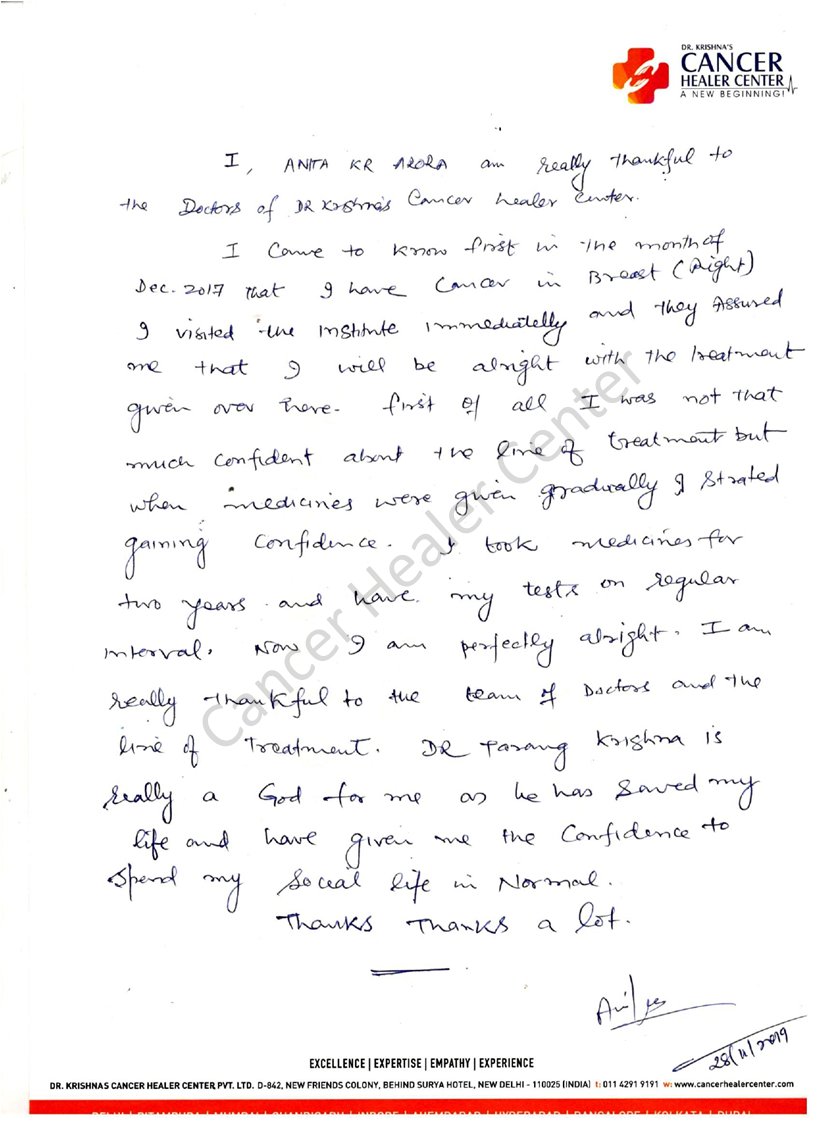 DR. KRISHNA'S
CANCER
HEALER CENTER
A NEW BEGINNING!
I, ANITA KR ARORA am really thankful to
the Doctors of DR Krishna's Cancer healer Center.
I Came to know first in the month of
Dec. 2017 that I have Cancer in Breast (Right)
I visited the institute immediatelly and they Assured
me that I will be alright with the treatment
given over there. first of all I was not that
much Confident about the line of treatment but
when medicines were given gradually I Strated
gaining Confidence. I took medicines for
two years and have my tests on regular
interval. Now I am perfectly alright. I am
really thankful to the team of Doctors and the
line of Treatment. DR Tarang Krishna is
really a God for me as he has Saved my
life and have given me the Confidence to
Spend my Social life in Normal.
Thanks Thanks a lot.
28/11/2019
Cancer Healer Center
EXCELLENCE | EXPERTISE | EMPATHY | EXPERIENCE
DR. KRISHNAS CANCER HEALER CENTER PVT. LTD. D-842, NEW FRIENDS COLONY, BEHIND SURYA HOTEL, NEW DELHI - 110025 (INDIA) t: 011 4291 9191 w: www.cancerhealercenter.com